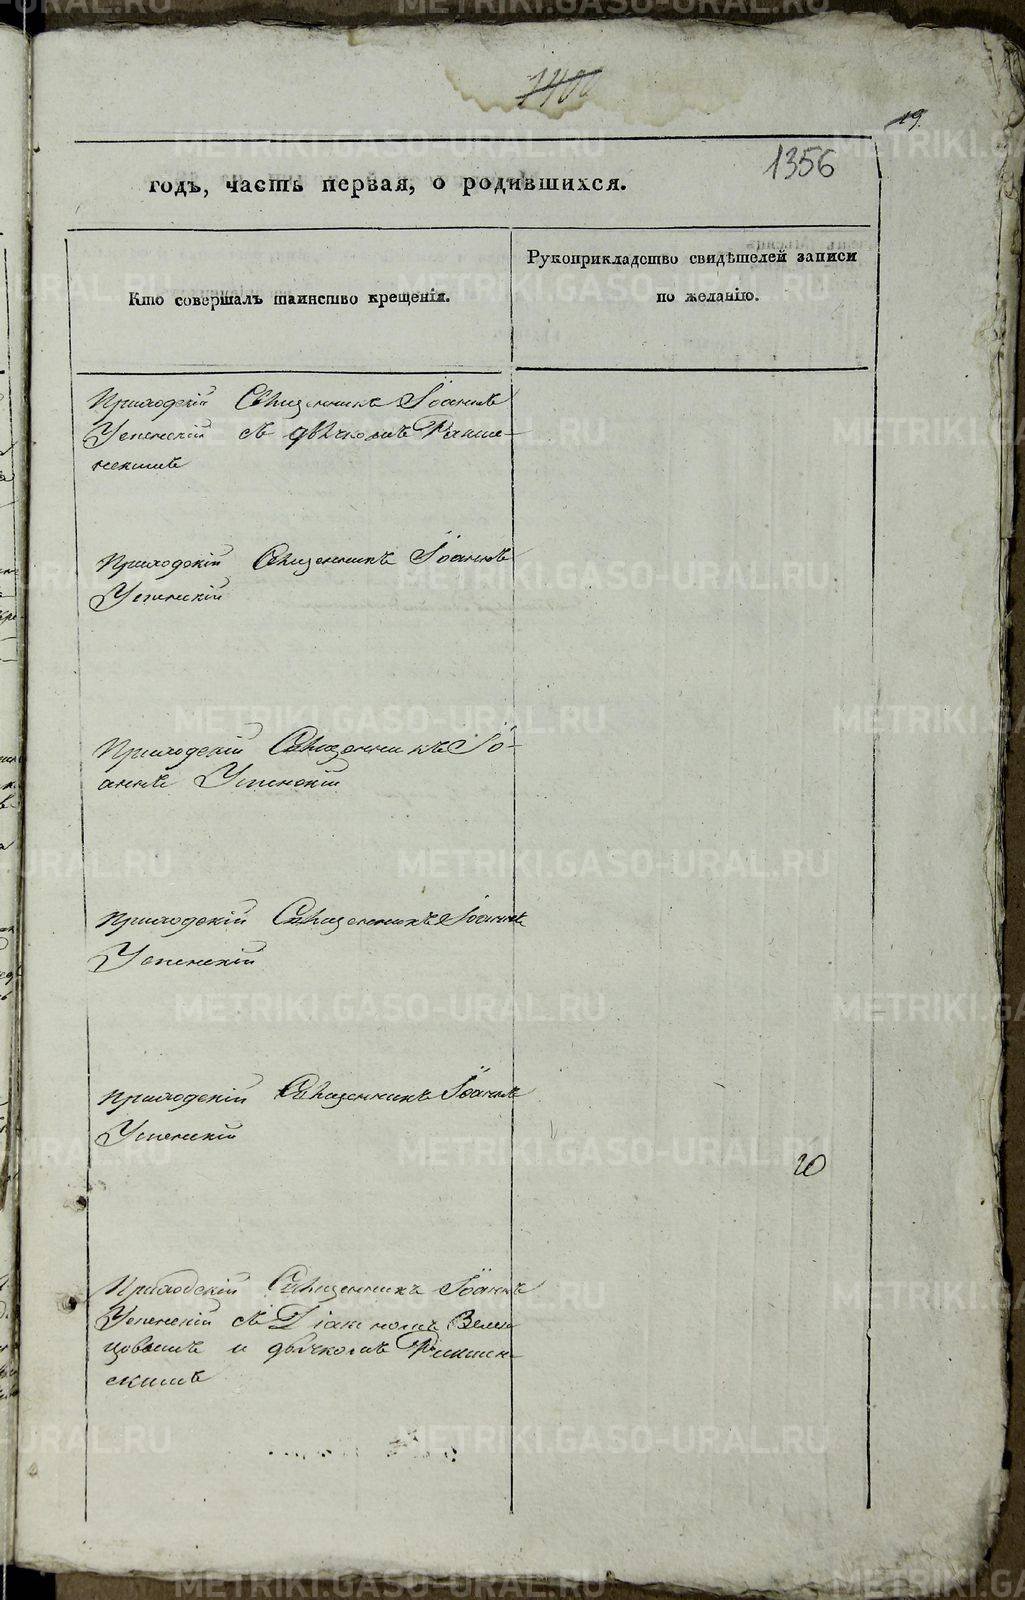 1400
19.
1356
годъ, часть первая, о родившихся.
Кто совершалъ таинство крещенія.
Рукоприкладство свидѣтелей записи
по желанію.
Приходскій Священникъ Іоаннъ
Успенскій съ дьячкомъ
Приходскій Священникъ Іоаннъ
Успенскій
Приходскій Священникъ Іо-
аннъ Успенскій
Приходскій Священникъ Іоаннъ
Успенскій
Приходскій Священникъ Іоаннъ
Успенскій
20
Приходскій Священникъ Іоаннъ
Успенскій съ Діакономъ
и дьячкомъ
METRIKI.GASO-URAL.RU